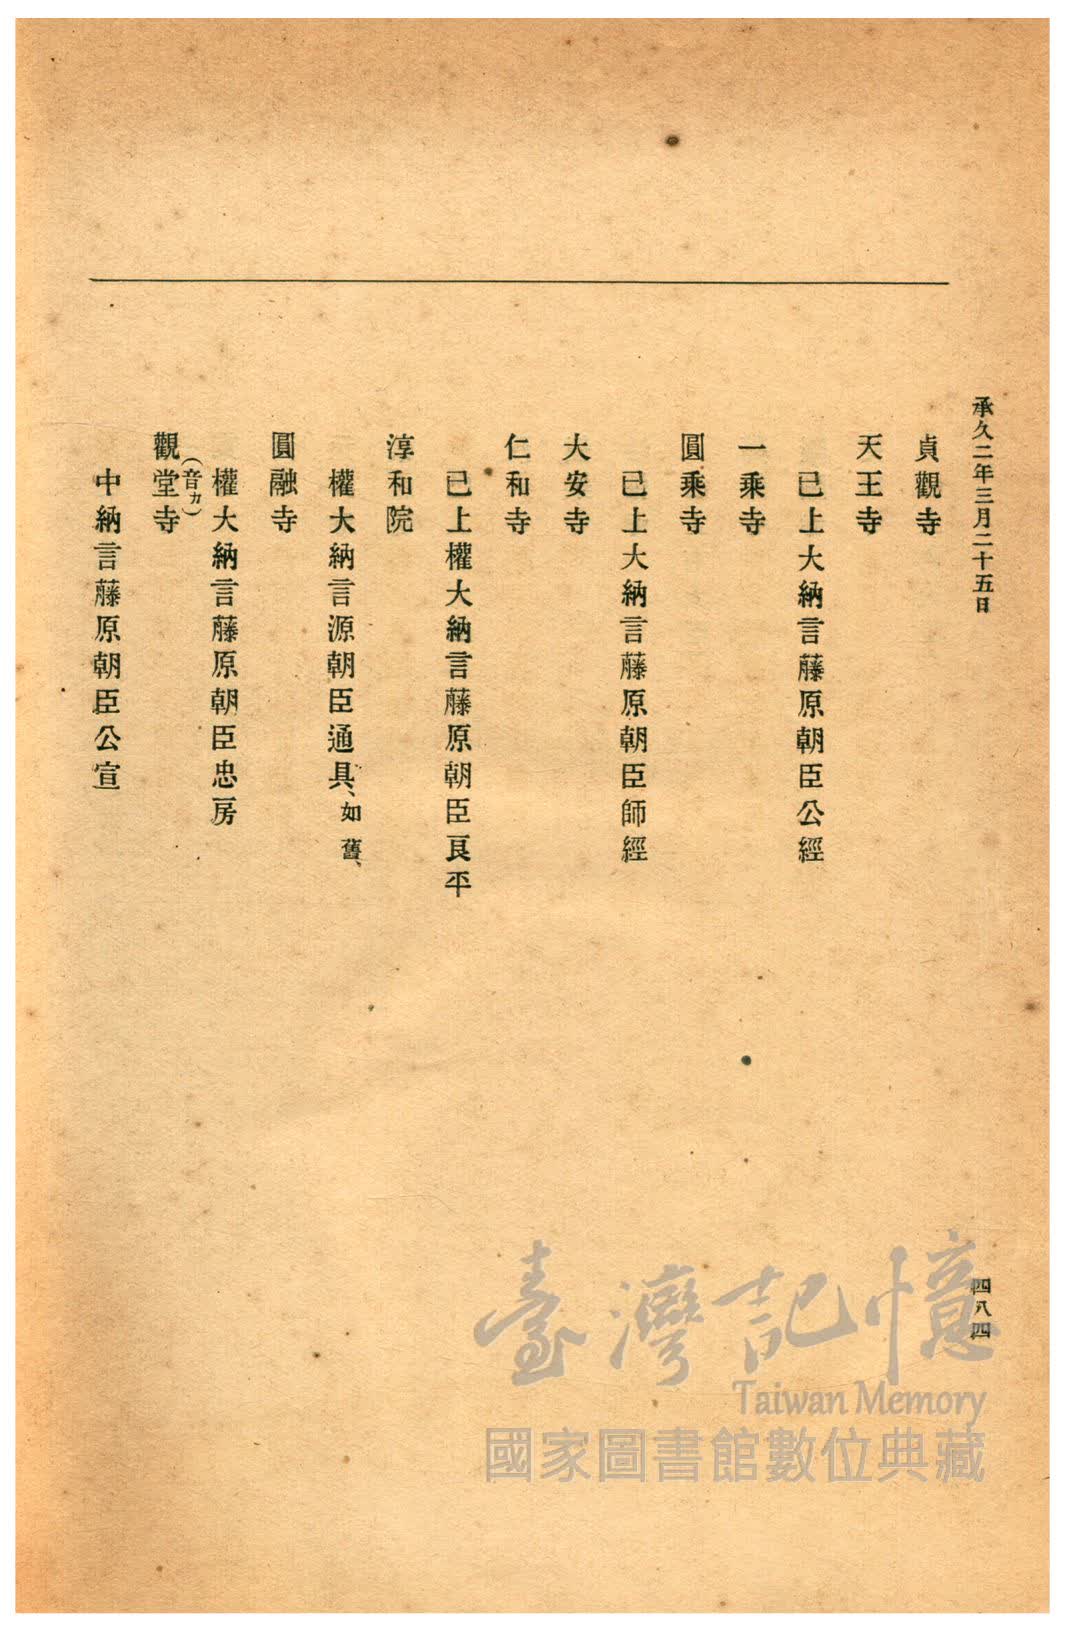 承久二年三月二十五日
貞觀寺
天王寺
已上大納言藤原朝臣公經
一乘寺
圓乘寺
已上大納言藤原朝臣師經
大安寺
仁和寺
已上權大納言藤原朝臣良平
淳和院
權大納言源朝臣通具、如舊、
圓融寺
權大納言藤原朝臣忠房
(音カ)
觀堂寺
中納言藤原朝臣公宣
四八四
臺灣記憶
Taiwan Memory
國家圖書館數位典藏